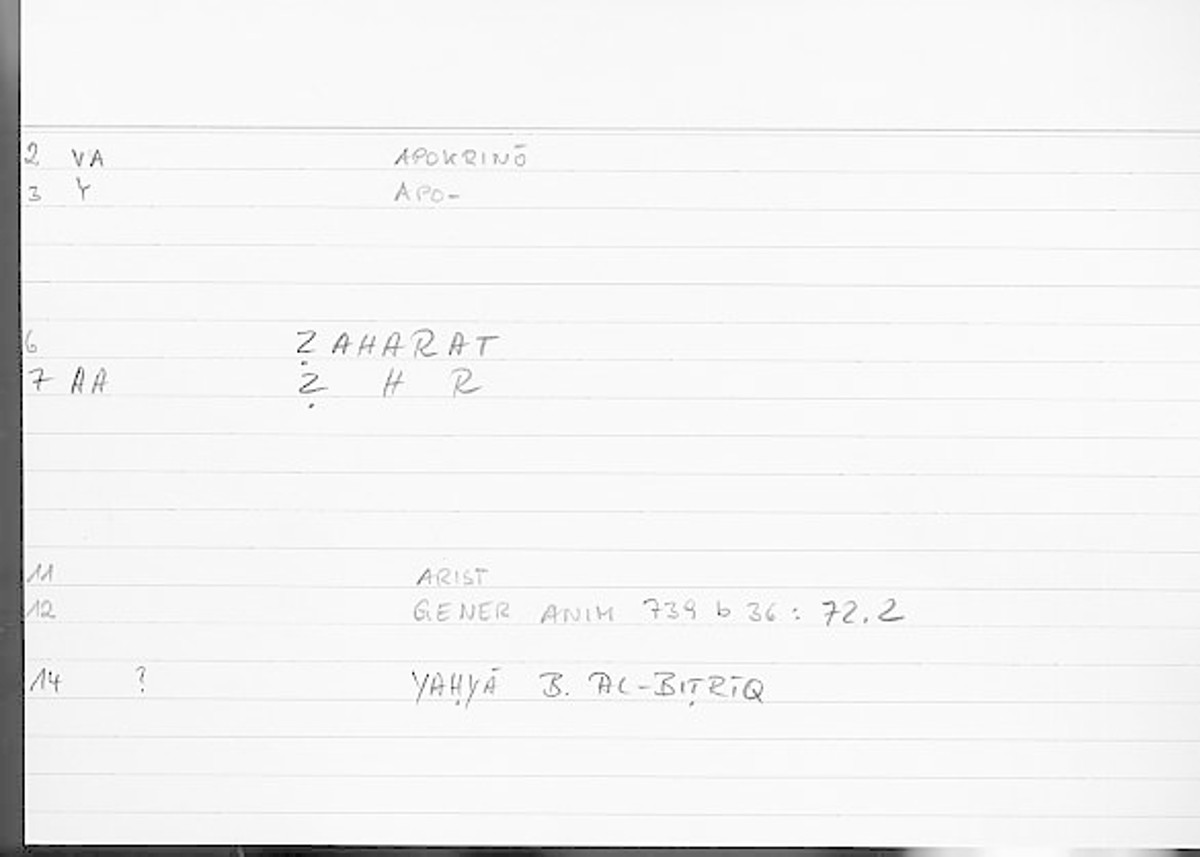 2 VA APOKRINŌ
3 Y APO-
6 ẒAHARAT
7 AA Ẓ H R
11 ARIST
12 GENER ANIM 739 b 36 : 72.2
14 ? YAḤYĀ B. AL-BIṬRĪQ